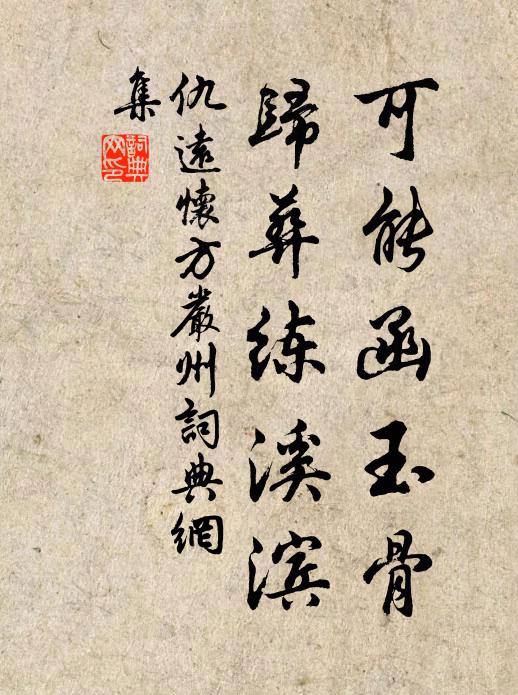 可能函玉骨
歸葬練溪滨
仇遠懷方嚴州詞典網
集
詞典网印